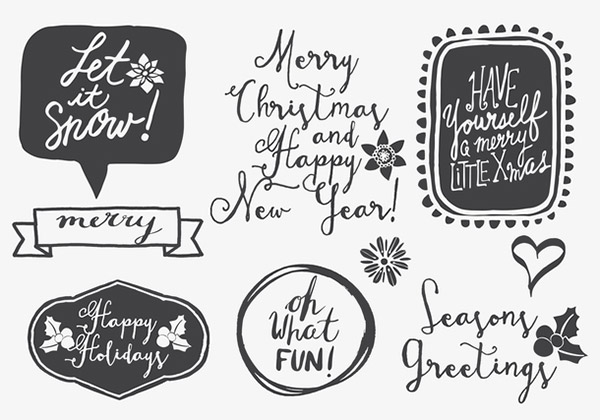 Let
it
Snow!
Merry
Christmas
and
Happy
New Year!
HAVE
Yourself
a merry
LITTLE Xmas
merry
Happy
Holidays
oh
What
FUN!
Seasons
Greetings